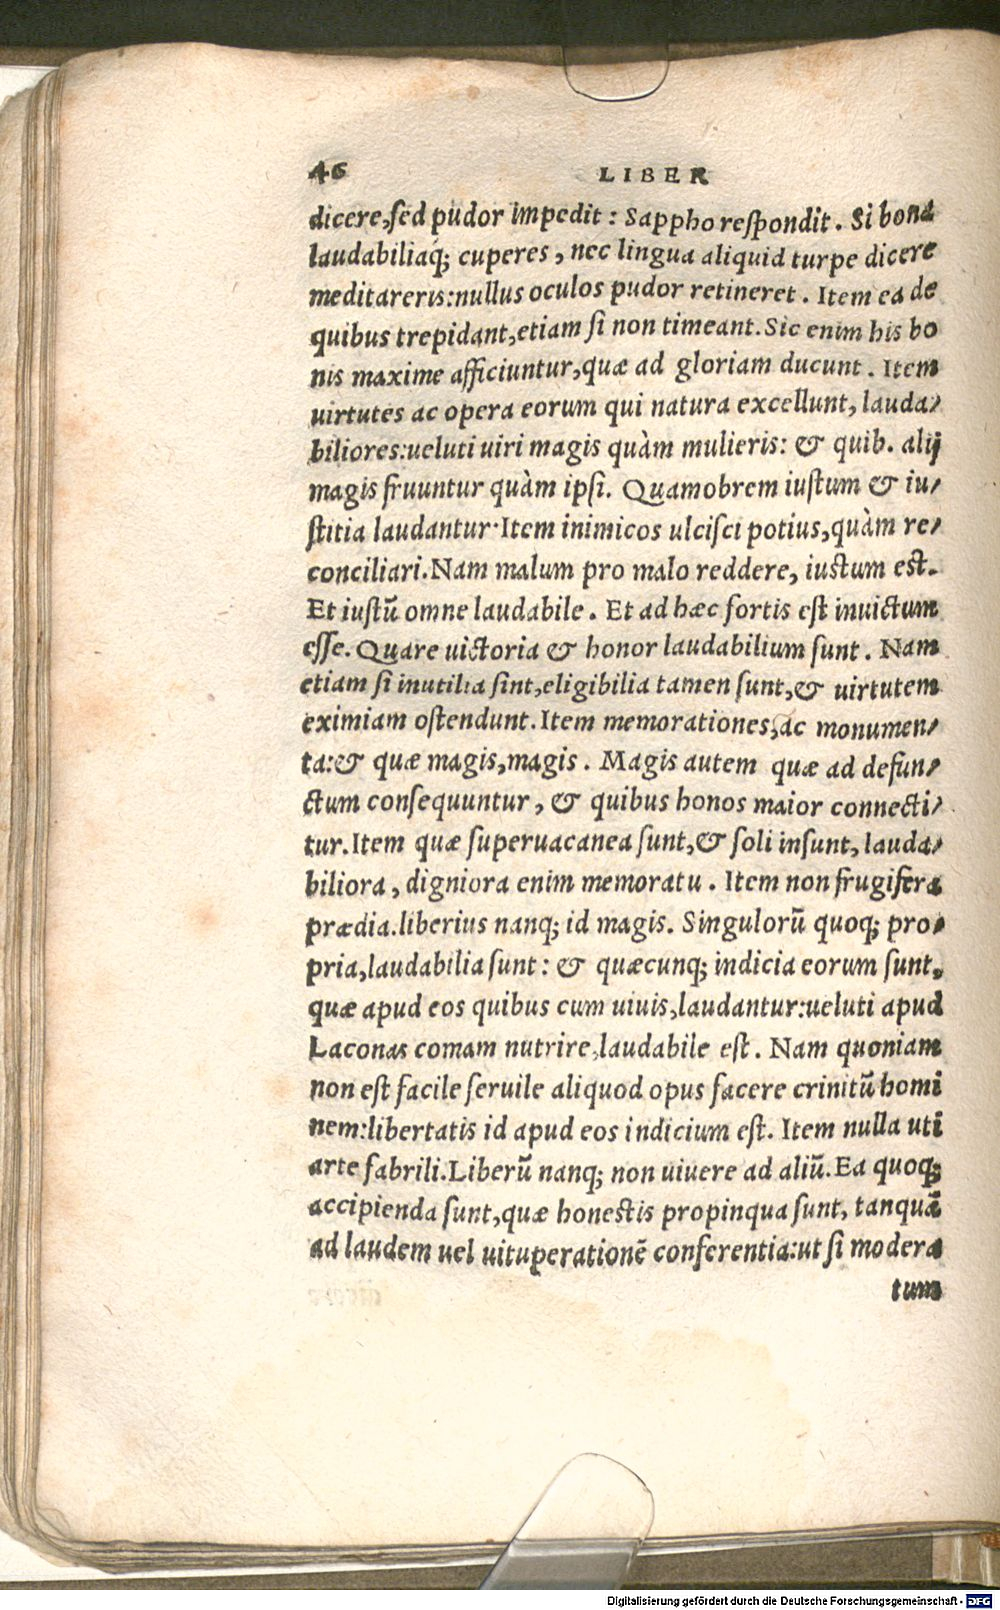 46 LIBER
dicere,ſed pudor impedit : Sappho reſpondit . Si bona
laudabiliaq́; cuperes , nec lingua aliquid turpe dicere
meditareris:nullus oculos pudor retineret . Item ea de
quibus trepidant,etiam ſi non timeant. Sic enim his bo
nis maxime afficiuntur,quæ ad gloriam ducunt . Item
uirtutes ac opera eorum qui natura excellunt, lauda/
biliores:ueluti uiri magis quàm mulieris: & quib. alij
magis fruuntur quàm ipſi. Quamobrem iuſtum & iu/
ſtitia laudantur·Item inimicos ulciſci potius,quàm re/
conciliari.Nam malum pro malo reddere, iuſtum eſt.
Et iuſtū omne laudabile . Et ad hæc fortis eſt inuictum
eſſe. Quare uictoria & honor laudabilium ſunt . Nam
etiam ſi inutilia ſint,eligibilia tamen ſunt,& uirtutem
eximiam oſtendunt. Item memorationes,ac monumen/
ta:& quæ magis,magis . Magis autem quæ ad defun/
ctum conſequuntur , & quibus honos maior connecti/
tur.Item quæ ſuperuacanea ſunt,& ſoli inſunt, lauda/
biliora , digniora enim memoratu . Item non frugifera
prædia.liberius nanq; id magis. Singulorū quoq; pro/
pria,laudabilia ſunt : & quæcunq; indicia eorum ſunt,
quæ apud eos quibus cum uiuis,laudantur:ueluti apud
Laconas comam nutrire,laudabile eſt . Nam quoniam
non eſt facile ſeruile aliquod opus facere crinitū homi
nem:libertatis id apud eos indicium eſt. Item nulla uti
arte fabrili.Liberū nanq; non uiuere ad aliū. Ea quoq;
accipienda ſunt,quæ honeſtis propinqua ſunt, tanquā
ad laudem uel uituperationē conferentia:ut ſi modera
tum
Digitalisierung gefördert durch die Deutsche Forschungsgemeinschaft - DFG